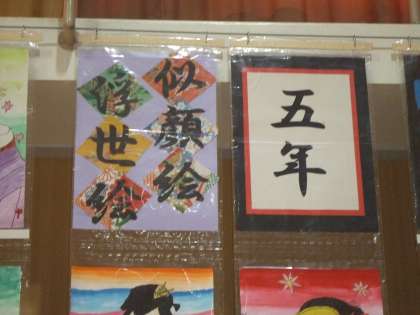 似顔絵
浮世絵
五年